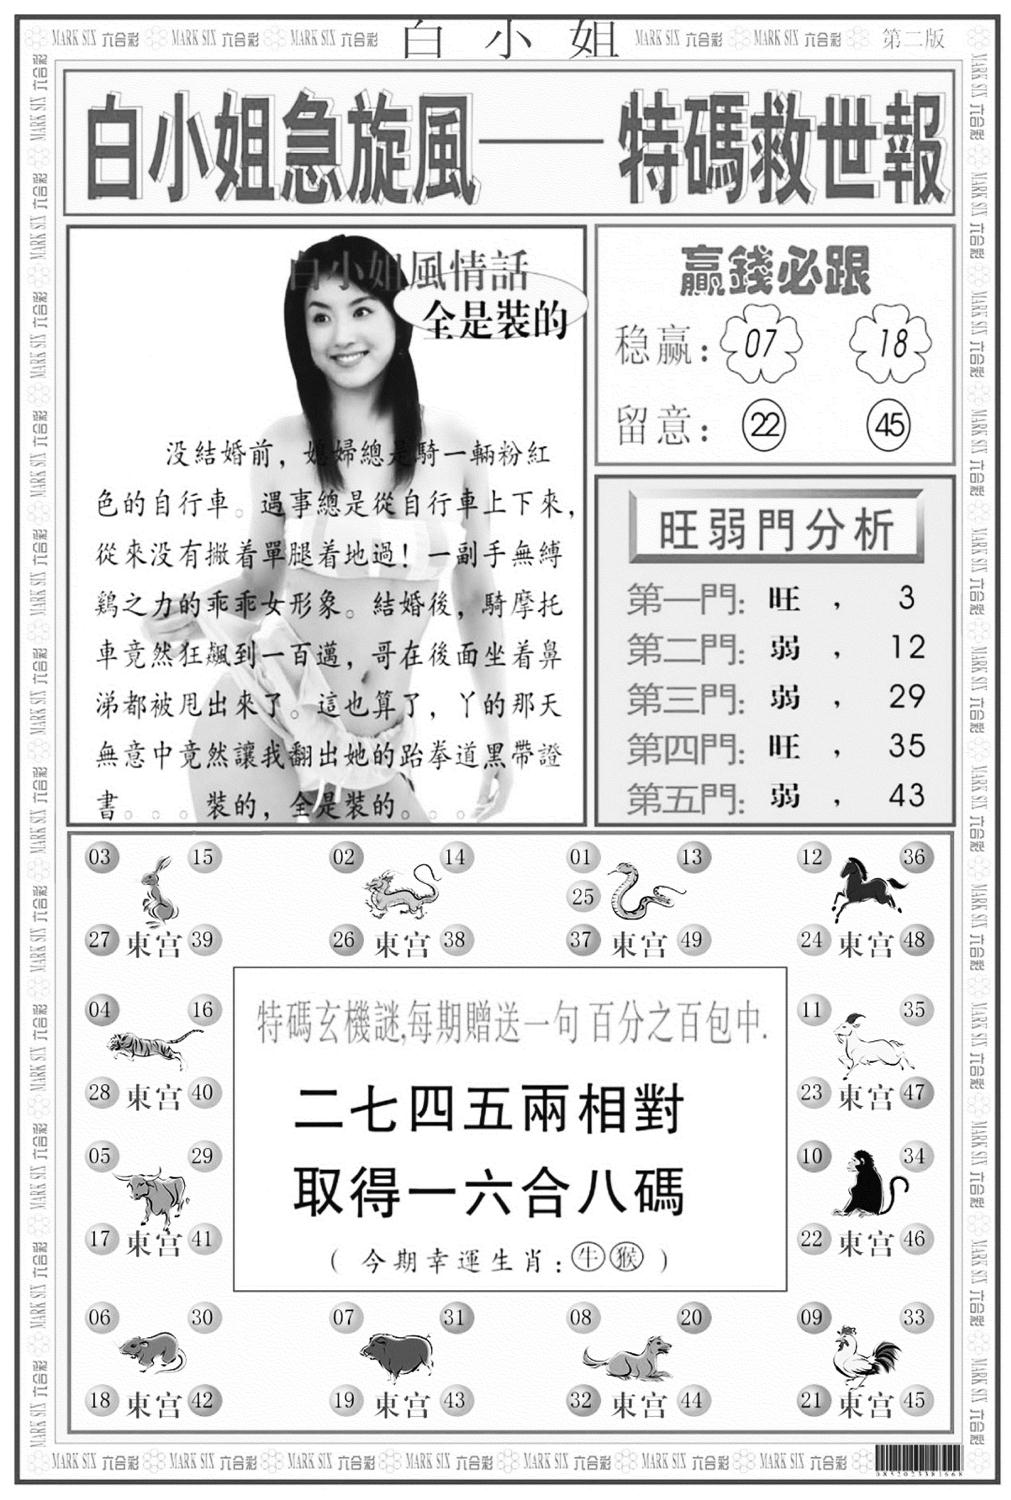 MARK SIX 六合彩 MARK SIX 六合彩 MARK SIX 六合彩 白小姐 MARK SIX 六合彩 MARK SIX 六合彩 第二版
白小姐急旋風——特碼救世報
白小姐風情話
全是裝的
没結婚前，媳婦總是騎一輛粉紅
色的自行車。遇事總是從自行車上下來，
從來没有撇着單腿着地過！一副手無縛
鷄之力的乖乖女形象。結婚後，騎摩托
車竟然狂飆到一百邁，哥在後面坐着鼻
涕都被甩出來了。這也算了，丫的那天
無意中竟然讓我翻出她的跆拳道黑帶證
書。。。裝的，全是裝的。。。
贏錢必跟
稳赢：07 18
留意：22 45
旺弱門分析
第一門：旺，3
第二門：弱，12
第三門：弱，29
第四門：旺，35
第五門：弱，43
03 15 02 14 01 13 12 36
25
27 東宫 39 26 東宫 38 37 東宫 49 24 東宫 48
04 16 11 35
28 東宫 40 23 東宫 47
05 29 10 34
17 東宫 41 22 東宫 46
特碼玄機謎,每期贈送一句百分之百包中.
二七四五兩相對
取得一六合八碼
（今期幸運生肖：牛猴）
06 30 07 31 08 20 09 33
18 東宫 42 19 東宫 43 32 東宫 44 21 東宫 45
MARK SIX 六合彩 MARK SIX 六合彩 MARK SIX 六合彩 MARK SIX 六合彩 MARK SIX 六合彩 MARK SIX 六合彩 MARK SIX 六合彩